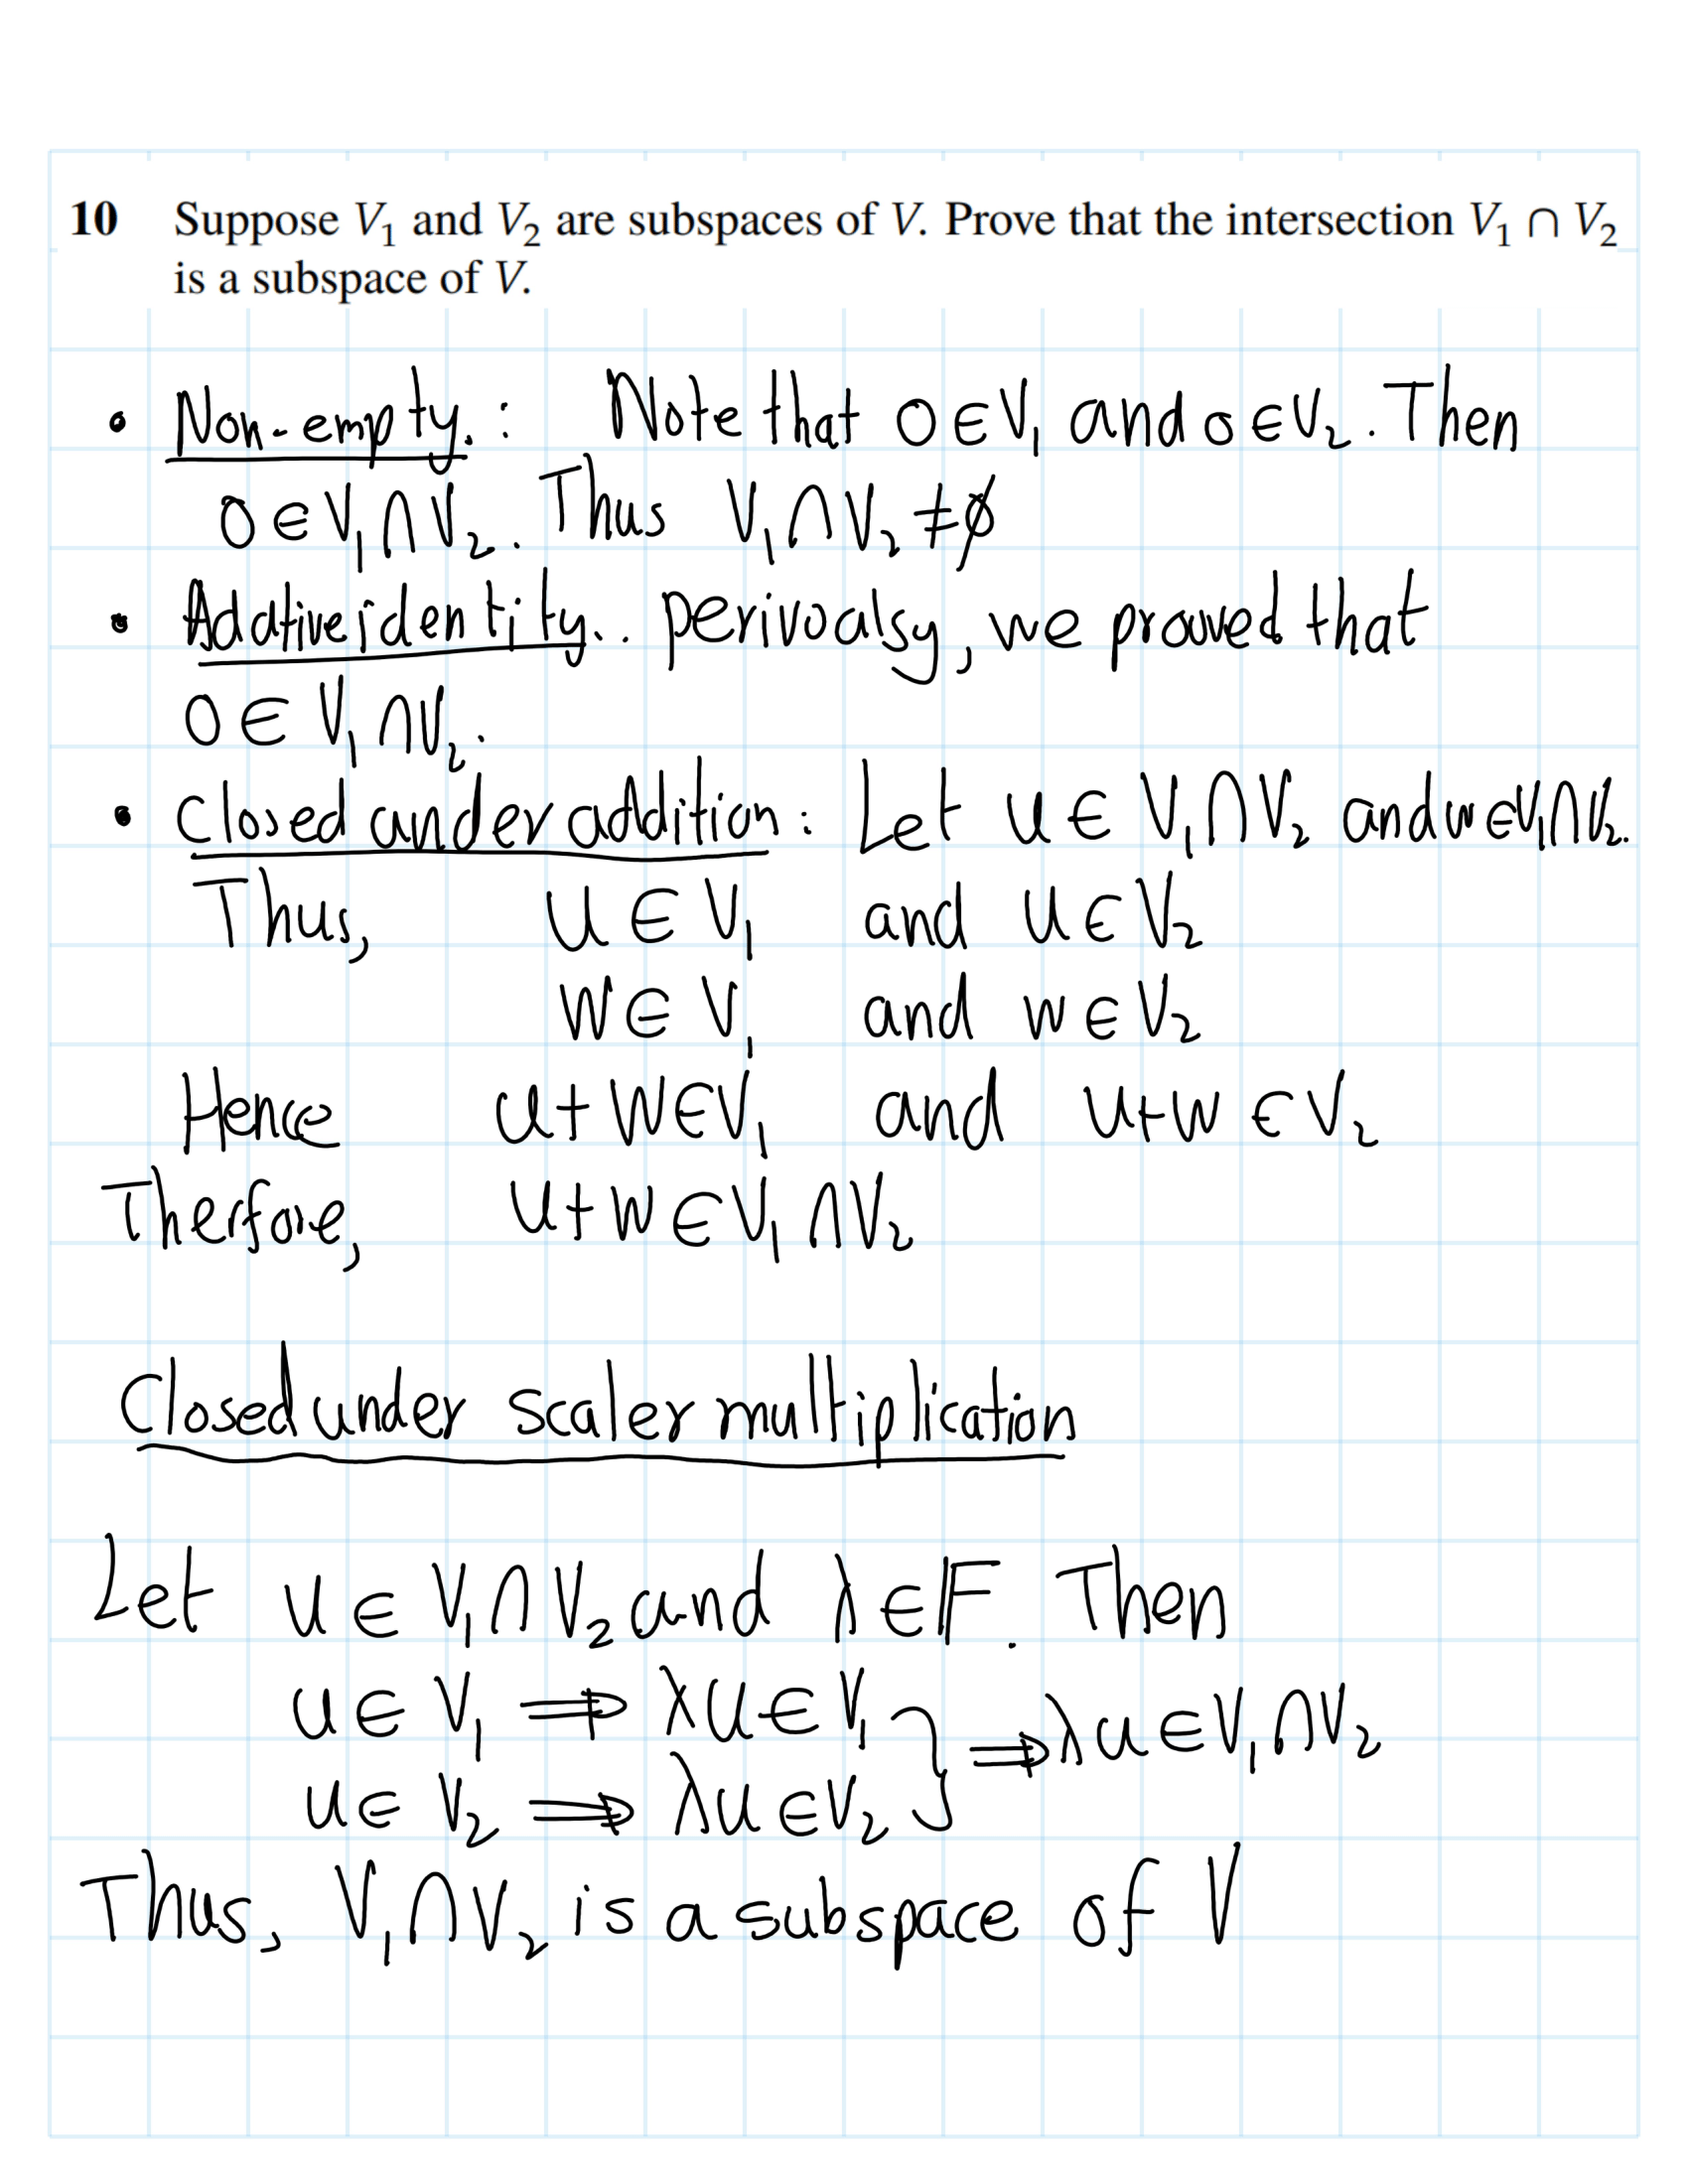 10 Suppose V₁ and V₂ are subspaces of V. Prove that the intersection V₁ ∩ V₂
is a subspace of V.
• Non-empty. : Note that 0 ∈ V₁ and 0 ∈ V₂. Then
0 ∈ V₁ ∩ V₂. Thus V₁ ∩ V₂ ≠ ∅
• Addative identity.. perivoalsy, we prouved that
0 ∈ V₁ ∩ V₂.
• Closed under addition: Let u ∈ V₁ ∩ V₂ and w ∈ V₁ ∩ V₂.
Thus, u ∈ V₁ and u ∈ V₂
w ∈ V₁ and w ∈ V₂
Hence u + w ∈ V₁ and u + w ∈ V₂
Therfore, u + w ∈ V₁ ∩ V₂
Closed under scaler multiplication
Let u ∈ V₁ ∩ V₂ and λ ∈ F. Then
u ∈ V₁ ⇒ λu ∈ V₁ } ⇒ λu ∈ V₁ ∩ V₂
u ∈ V₂ ⇒ λu ∈ V₂
Thus, V₁ ∩ V₂ is a subspace of V